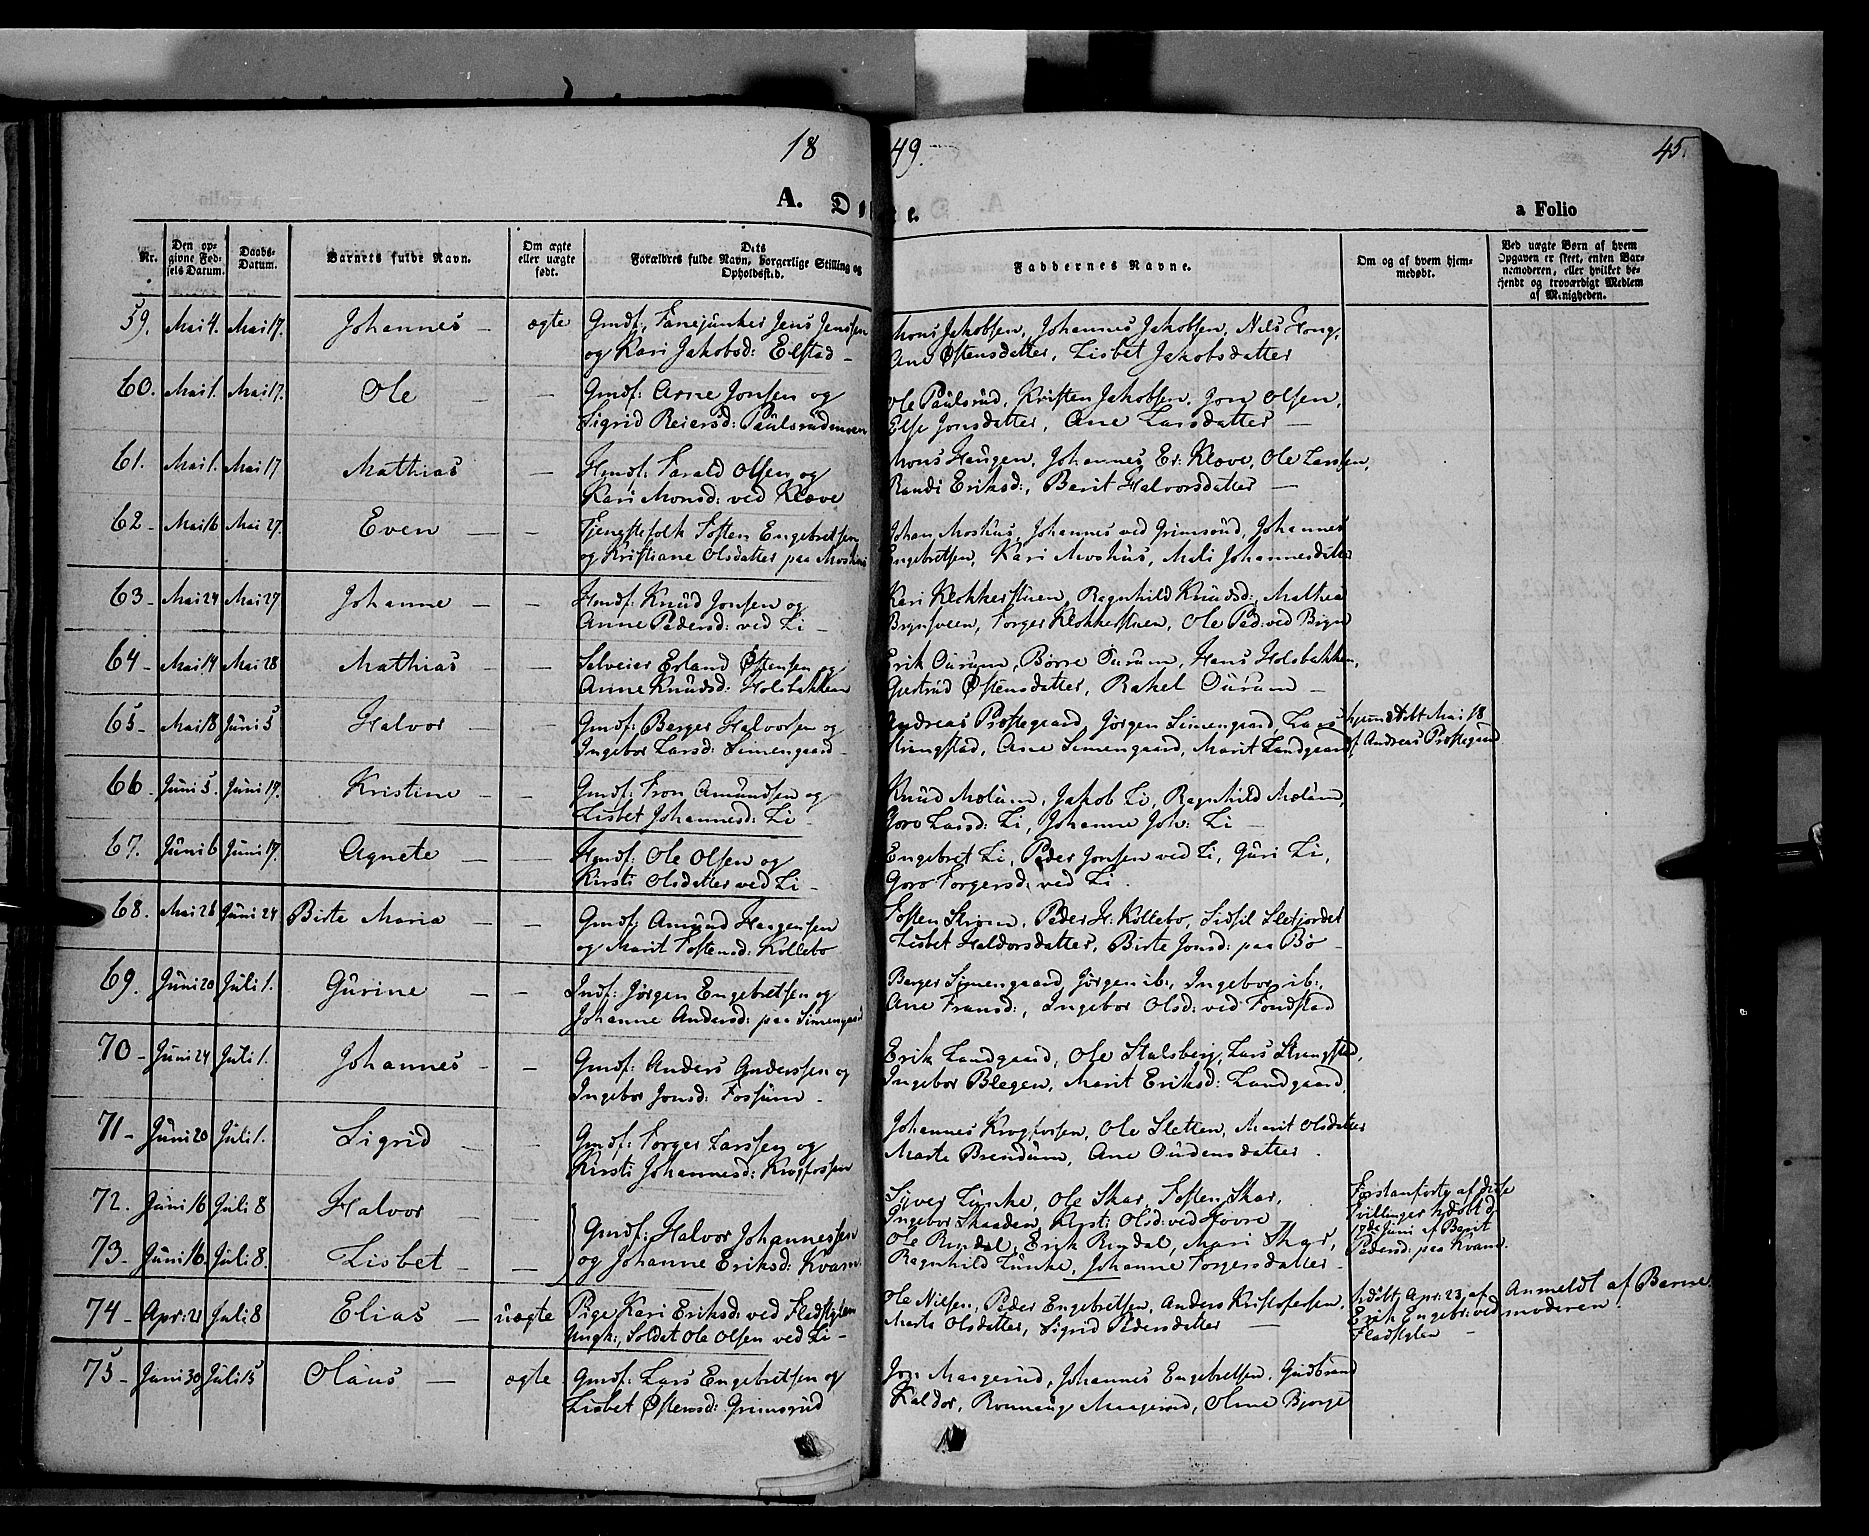 1849.
45.
A. Døbte.
a Folio
Nr.
Den opgivne Fødselsdatum.
Daabs-Datum.
Barnets fulde Navn.
Om ægte eller uægte født.
Dets Forældres fulde Navn, borgerlige Stilling og Opholdssted.
Faddernes Navne.
Om og af hvem hjemmedøbt.
Ved uægte Børn af hvem Opgaven er skeet, enten Barnemoderen, eller hvilket bekjendt og troværdigt Medlem af Menigheden.
59. Mai 4. Mai 17. Johannes – ægte Gmdf: Fanejunker Jens Jenssen Mons Jakobsen, Johannes Jakobsen, Nils
og Kari Jakobsd: Elstad – Ane Østensdatter, Lisbet Jakobsdatter
60. Mai 1. Mai 17. Ole – – Gmdf: Arne Jonsen og Ole Paulsrud, Kristen Jakobsen, Jon Olsen,
Sigrid Reiersd: Paulsrudmoen Else Jonsdatter, Ane Larsdatter –
61. Mai 1. Mai 17 Mathias – Hmdf: Tarald Olsen og Mons Haugen, Johannes Er. Kleve, Ole Larsen,
Kari Monsd: ved Kleve Randi Eriksd:, Berit Halvorsdatter –
62 – Mai 16 Mai 27. Even – – Tjenestefolk Tosten Engebretsen Johan Moshus, Johannes ved Grimsrud, Johannes
og Kristiane Olsdatter paa Moshus Engebretsen, Kari Moshus, Mali Johannesdatter
63 – Mai 24 Mai 27 Johanne – – Hmdf: Knud Jonsen og Kari Klokkerstuen, Ragnhild Knudsd:, Mathea
Anne Pedersd: ved Li – Brynsveen, Torger Klokkerstuen, Ole Ped: ved Bryn
64 – Mai 14 Mai 28 Mathias – – Selveier Erland Østensen og Erik Ourum, Børre Ourum, Hans Holsbakken,
Anne Knudsd: Holsbakken Gjertrud Østensdatter, Rakel Ourum –
65 – Mai 18 Juni 5 Halvor – Gmdf: Berger Halvorsen og Andreas Prestegaard, Jørgen Simengaard, Lars hjemdøbt Mai 18
Ingebor Larsd: Simengaard – Strangstad, Ane Simengaard, Marit Landgaard af Andreas Prestegaard
66. Juni 5. Juni 17. Kristine – – Gmdf: Iver Amundsen og Knud Melum, Jakob Li, Ragnhild Melum,
Lisbet Johannesd: Li – Goro Larsd: Li, Johanne Joh: Li –
67. Juni 6 Juni 17. Agnete – – Hmdf: Ole Olsen og Engebret Li, Peder Jonsen ved Li, Guri Li,
Kirsti Olsdatter ved Li – Goro Torgersd: ved Li.
68. Mai 26 Juni 24 Birte Maria – – Gmdf: Amund Haagensen Tosten Stigen, Peder H: Kollebo, Sidsil Slefjordet
og Marit Tostensd: Kollebo Lisbet Haldorsdatter, Birte Jonsd: paa Bø –
69. Juni 20 Juli 1. Gurine – – Indf: Jørgen Engebretsen og Berger Simengaard, Jørgen ib:, Ingebor ib:,
Johanne Andersd: paa Simengaard Ane Fransd:, Ingebor Olsd: ved Fondstad
70 – Juni 24 Juli 1. Johannes – – Gmdf: Anders Anderssen og Erik Landgaard, Ole Stalsberg, Lars Strangstad,
Ingebor Jonsd: Fossum – Ingebor Blegen, Marit Eriksd: Landgaard,
71 – Juni 20 Juli 1. Sigrid – – Gmdf: Torger Larssen og Johannes Krogfossen, Ole Sletten, Marit Olsdatter
Kirsti Johannesd: Krogfossen Marte Brendum, Ane Oudensdatter.
72. Juni 16 Juli 8 Halvor – – Gmdf: Halvor Johannessen Siver Lunke, Ole Skar, Tosten Skar,
Ingebor Skaaden, Kirsti Olsd: ved Hovre
73 – Juni 16 Juli 8. Lisbet – – og Johanne Eriksd: Kvam Ole Rindal, Erik Rindal, Mari Skar,
Ragnhild Lunke, Johanne Torgersdatter –
Førstanførte af disse
Tvillinger hdøbt d.
17de Juni af Berit
Pedersd: paa Kvam.
74 – Apr: 21 Juli 8 Elias – uægte Pige Kari Eriksd: ved Fladstylen Ole Nilsen, Peder Engebretsen, Anders Kristofersen, hdøbt Apr: 23, af Anmeldt af Barne
Ungk:, Soldat Ole Olsen ved Li – Marte Olsdatter, Sigrid Pedersdatter – Erik Engebr: ved moderen.
Fladstylen –
75 – Juni 30 Juli 15 Olaus – ægte Gmdf: Lars Engebretsen og Jon Maagerud, Johannes Engebretsen, Gudbrand
Lisbet Østensd: Grimsrud Kaldor, Rønnaug Maagerud, Oline Bjorge